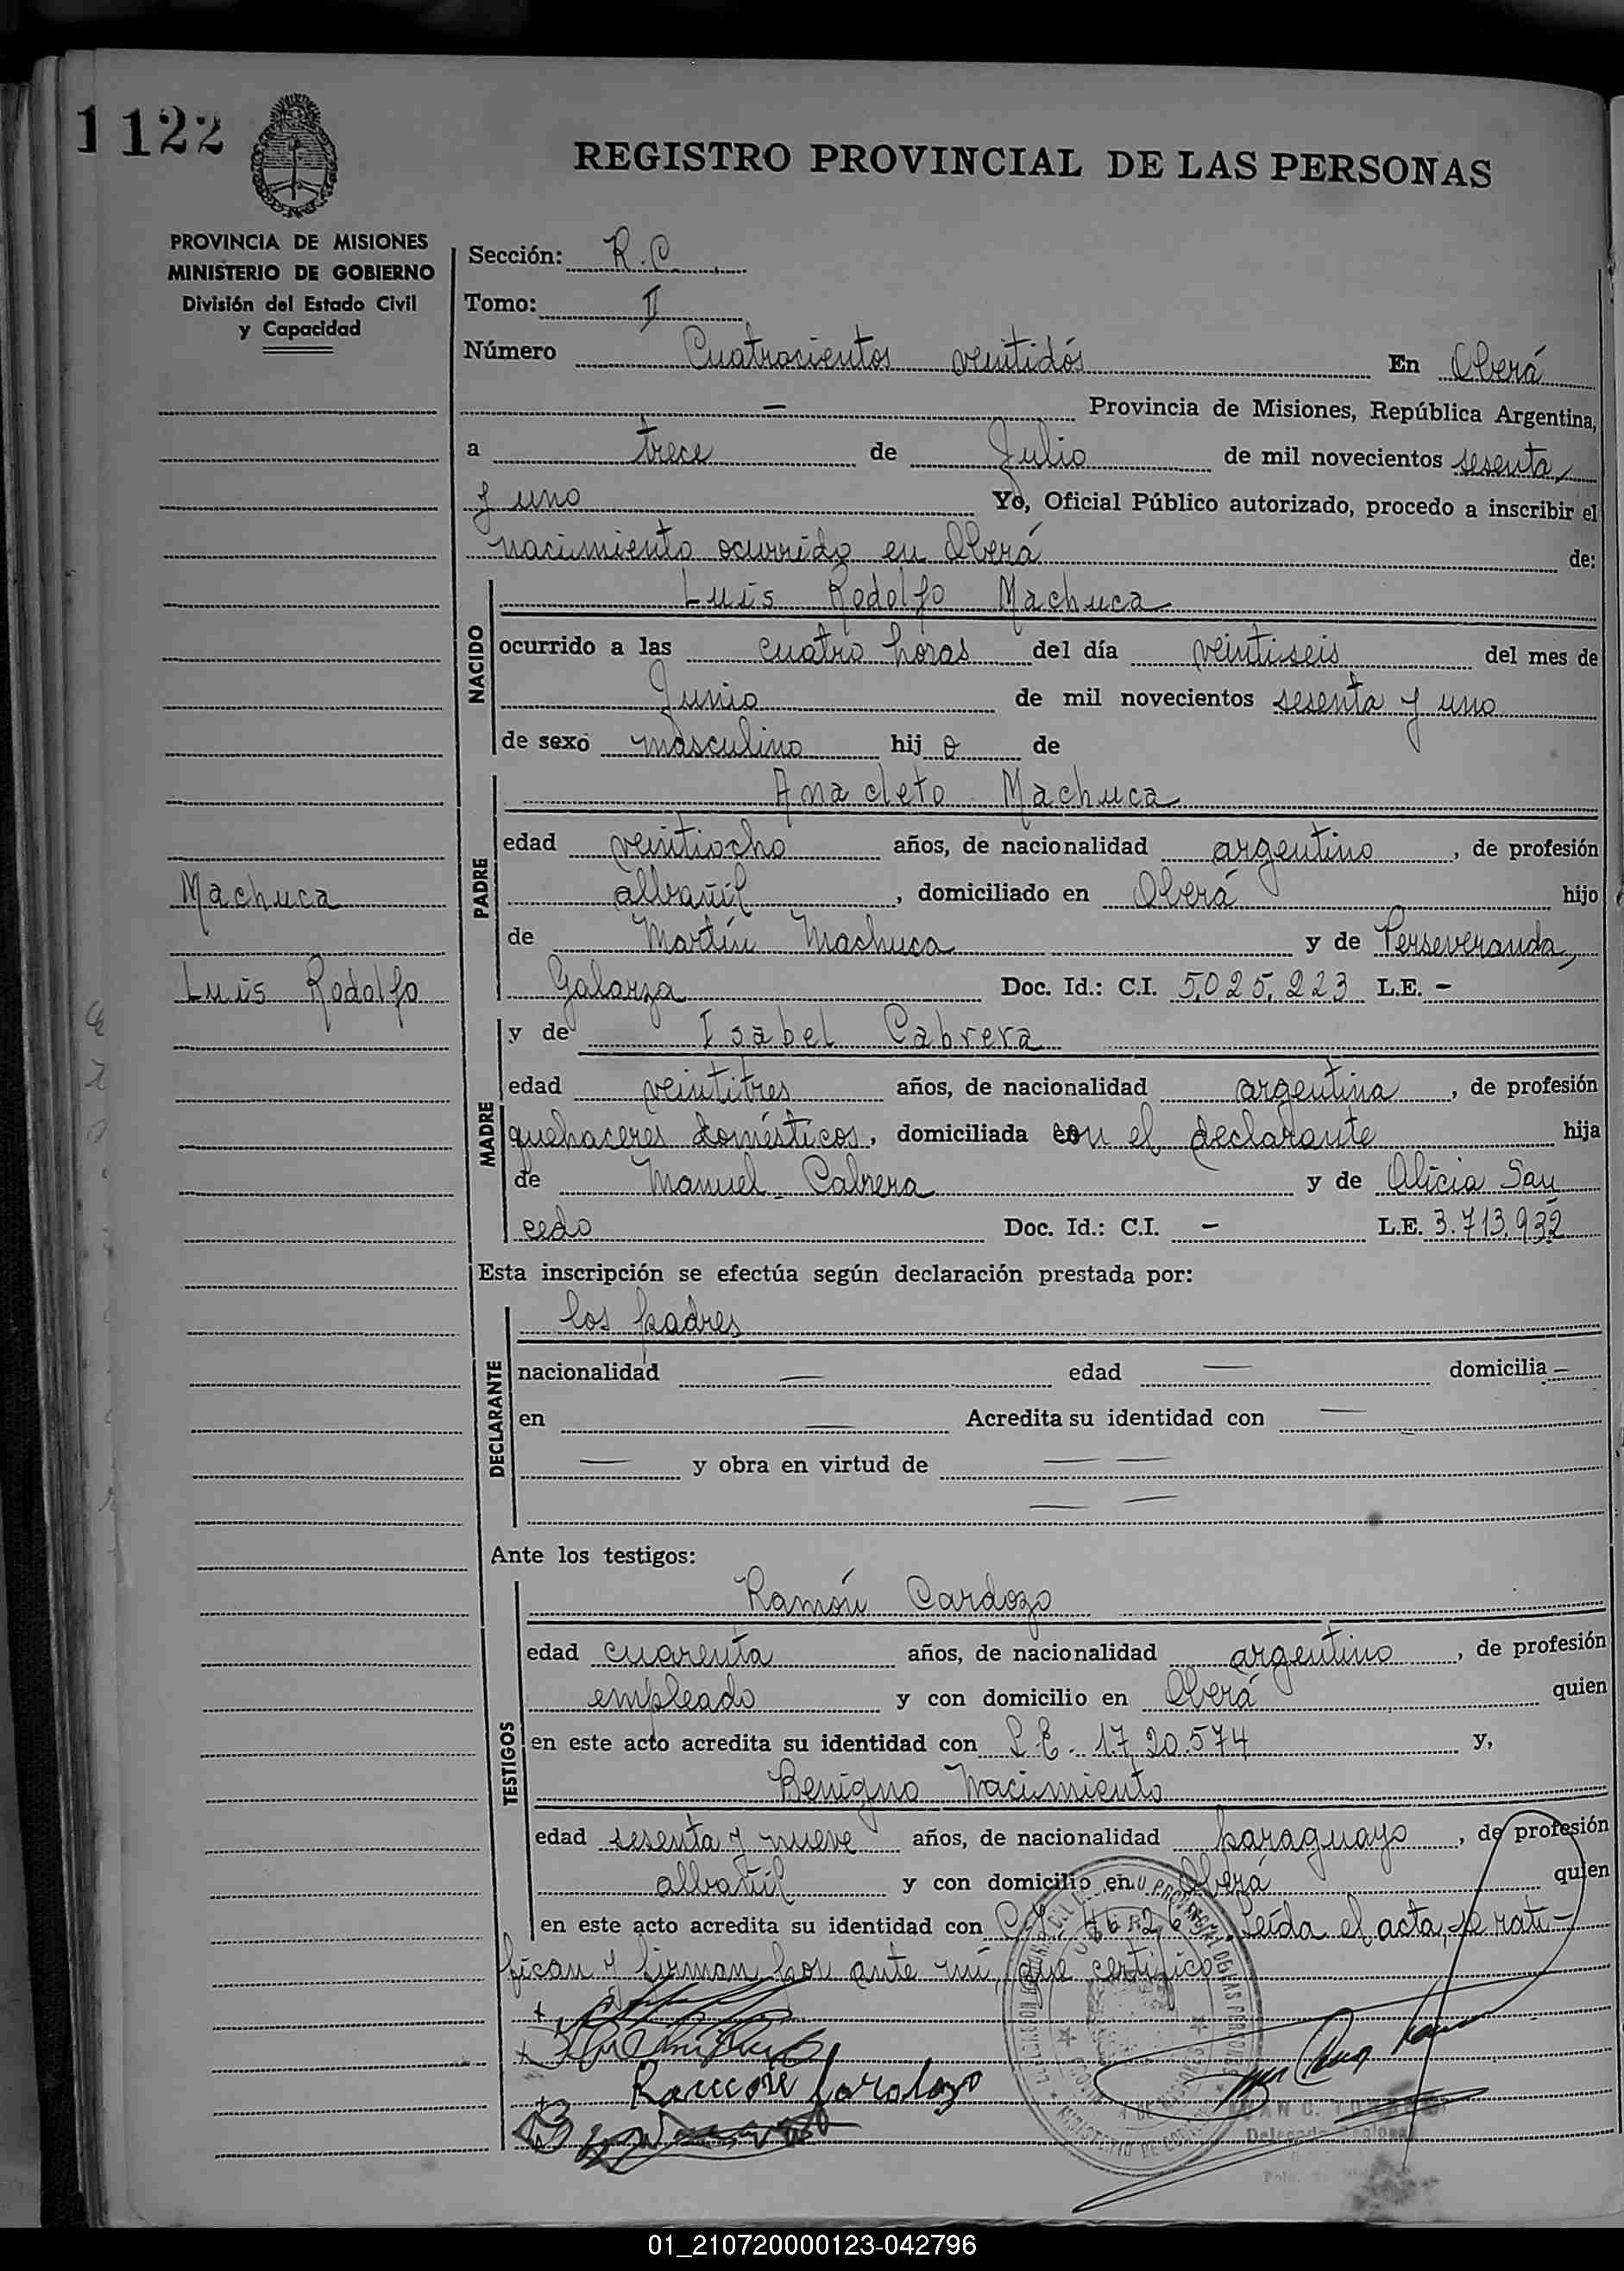 1 122
REGISTRO PROVINCIAL DE LAS PERSONAS
PROVINCIA DE MISIONES
MINISTERIO DE GOBIERNO
División del Estado Civil
y Capacidad
Sección: R.C.
Tomo: II
Número Cuatrocientos veintidós En Oberá
— Provincia de Misiones, República Argentina,
a trece de Julio de mil novecientos sesenta
y uno Yo, Oficial Público autorizado, procedo a inscribir el
nacimiento ocurrido en Oberá de:
NACIDO
Luis Rodolfo Machuca
ocurrido a las cuatro horas del día veintiseis del mes de
Junio de mil novecientos sesenta y uno
de sexo masculino hijo de
PADRE
Anacleto Machuca
edad veintiocho años, de nacionalidad argentino, de profesión
albañil, domiciliado en Oberá hijo
Machuca
de Martín Machuca y de Perseveranda,
Luis Rodolfo
Galarza Doc. Id.: C.I. 5.025.223 L.E. —
MADRE
y de Isabel Cabrera
edad veintitres años, de nacionalidad argentina, de profesión
quehaceres domésticos, domiciliada con el declarante hija
de Manuel Cabrera y de Alicia Sau
cedo Doc. Id.: C.I. — L.E. 3.713.932
Esta inscripción se efectúa según declaración prestada por:
DECLARANTE
los padres
nacionalidad — edad — domicilia —
en — Acredita su identidad con —
— y obra en virtud de — —
— —
Ante los testigos:
TESTIGOS
Ramón Cardozo
edad cuarenta años, de nacionalidad argentino, de profesión
empleado y con domicilio en Oberá quien
en este acto acredita su identidad con L.E. 17.20.574 y,
Benigno Nacimiento
edad sesenta y nueve años, de nacionalidad paraguayo, de profesión
albañil y con domicilio en Oberá quien
en este acto acredita su identidad con Leída el acta, se rati-
fican y firman por ante mí, que certifico
Ramon Cardozo
01_210720000123-042796